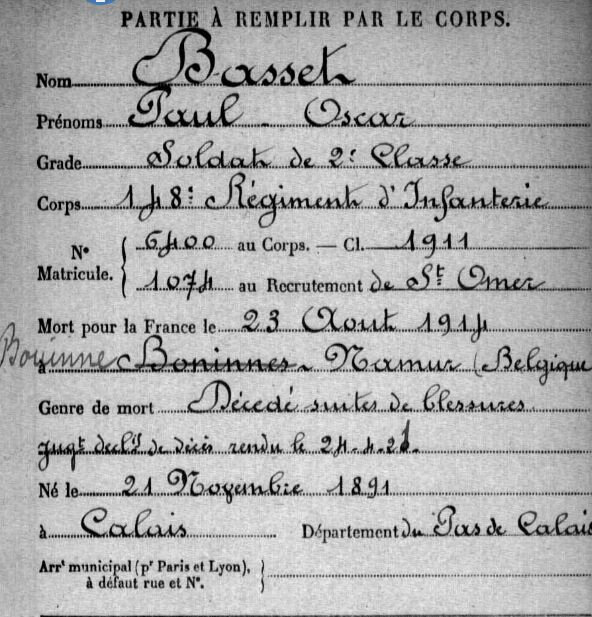 PARTIE À REMPLIR PAR LE CORPS.
Nom Basset
Prénoms Paul Oscar
Grade Soldat de 2e Classe
Corps 148e Régiment d'Infanterie
N° Matricule. 6400 au Corps. — Cl. 1911
1074 au Recrutement de St Omer
Mort pour la France le 23 Aout 1914
Bouinne
à Boninnes - Namur (Belgique
Genre de mort Décédé suites de blessures
jugt declif de décès rendu le 24.4.21.
Né le 21 Novembre 1891
à Calais Département du Pas de Calais
Arrt municipal (pr Paris et Lyon),
à défaut rue et N°.